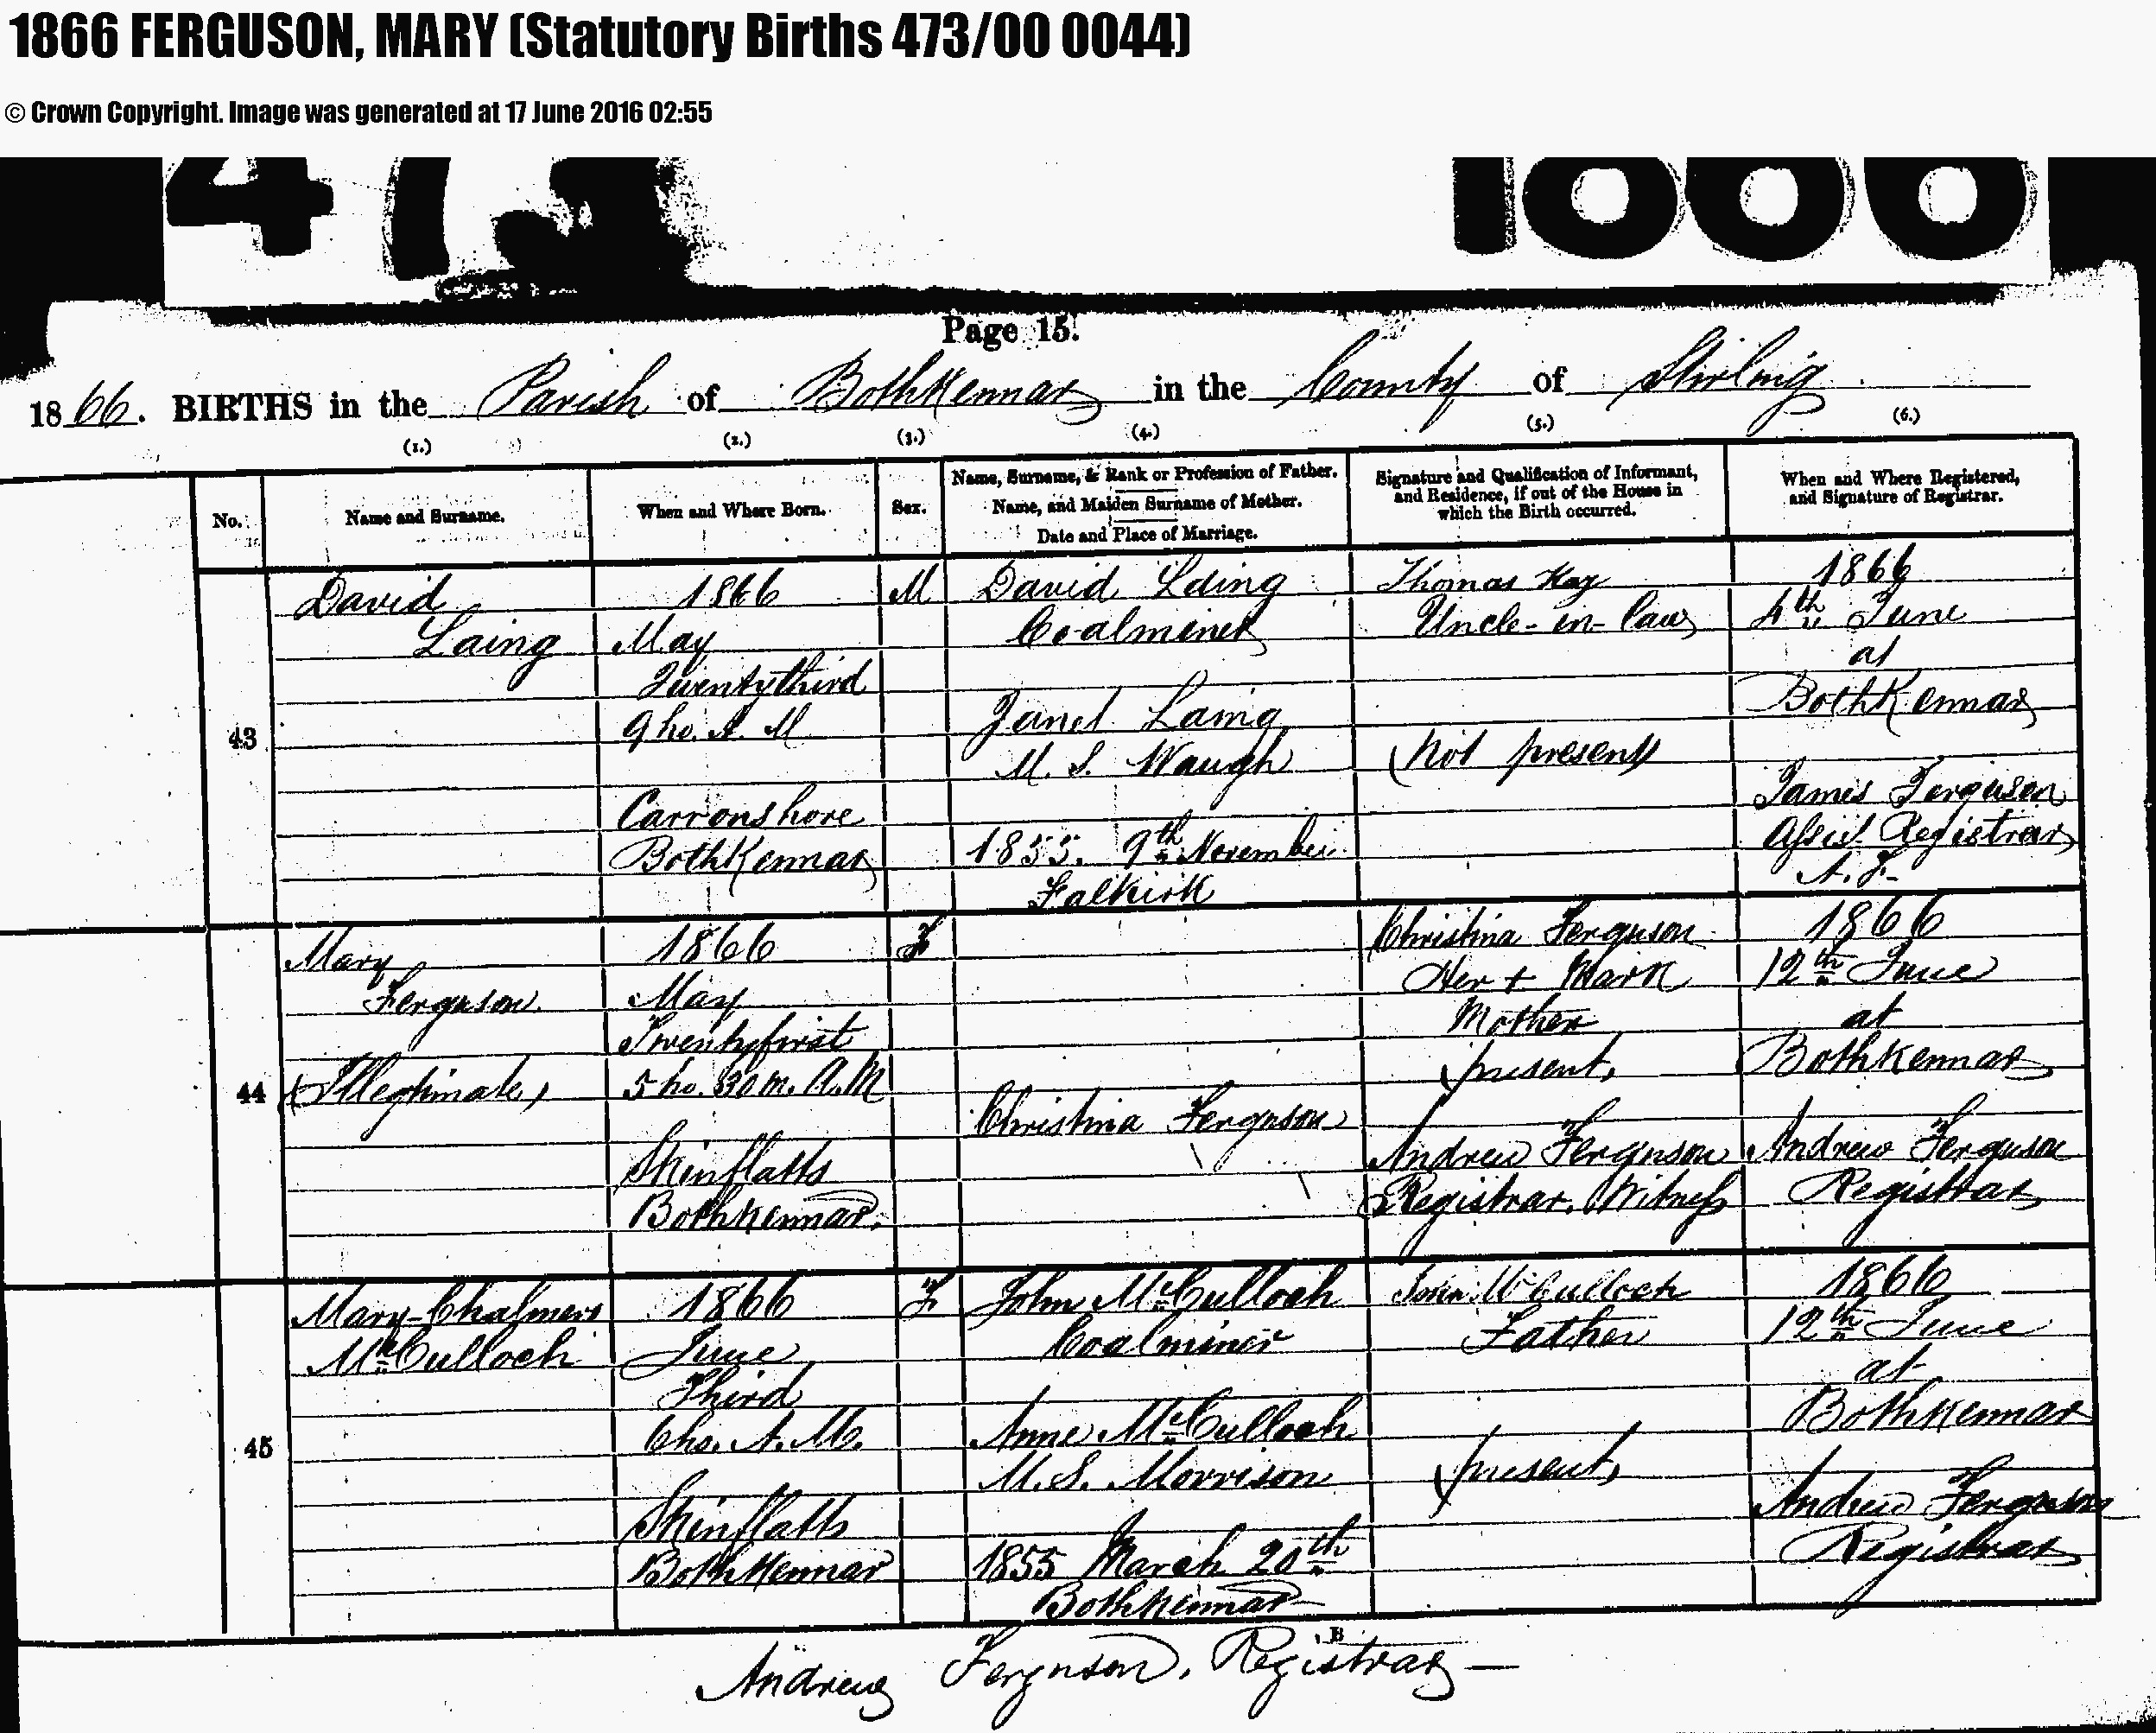 1866 FERGUSON, MARY (Statutory Births 473/00 0044)
© Crown Copyright. Image was generated at 17 June 2016 02:55
473
1866
Page 15.
1866. BIRTHS in the Parish of BothKennar in the County of Stirling
(1.) (2.) (3.) (4.) (5.) (6.)
No.
Name and Surname.
When and Where Born.
Sex.
Name, Surname, & Rank or Profession of Father.
Name, and Maiden Surname of Mother.
Date and Place of Marriage.
Signature and Qualification of Informant,
and Residence, if out of the House in
which the Birth occurred.
When and Where Registered,
and Signature of Registrar.
43
David
Laing
1866
May
Twentythird
9 ho. A. M
Carronshore
BothKennar
M
David Laing
Coalminer
Janet Laing
M. S. Waugh
1855. 9th November
Falkirk
Thomas Kay
Uncle-in-law
(Not present)
1866
4th June
at
BothKennar
James Ferguson
Assist. Registrar
A. F.
44
Mary
Ferguson
(Illegitimate)
1866
May
Twentyfirst
5 ho. 30 m. A.M
Skinflatts
BothKennar.
F
Christina Ferguson
Christina Ferguson
Her + Mark
Mother
(present)
Andrew Ferguson
Registrar, Witness
1866
12th June
at
BothKennar
Andrew Ferguson
Registrar
45
Mary Chalmers
McCulloch
1866
June
Third
6 ho. A. M.
Skinflatts
BothKennar
F
John McCulloch
Coalminer
Anne McCulloch
M. S. Morrison
1855 March 20th
BothKennar
John McCulloch
Father
(present)
1866
12th June
at
BothKennar
Andrew Ferguson
Registrar
B
Andrew Ferguson, Registrar